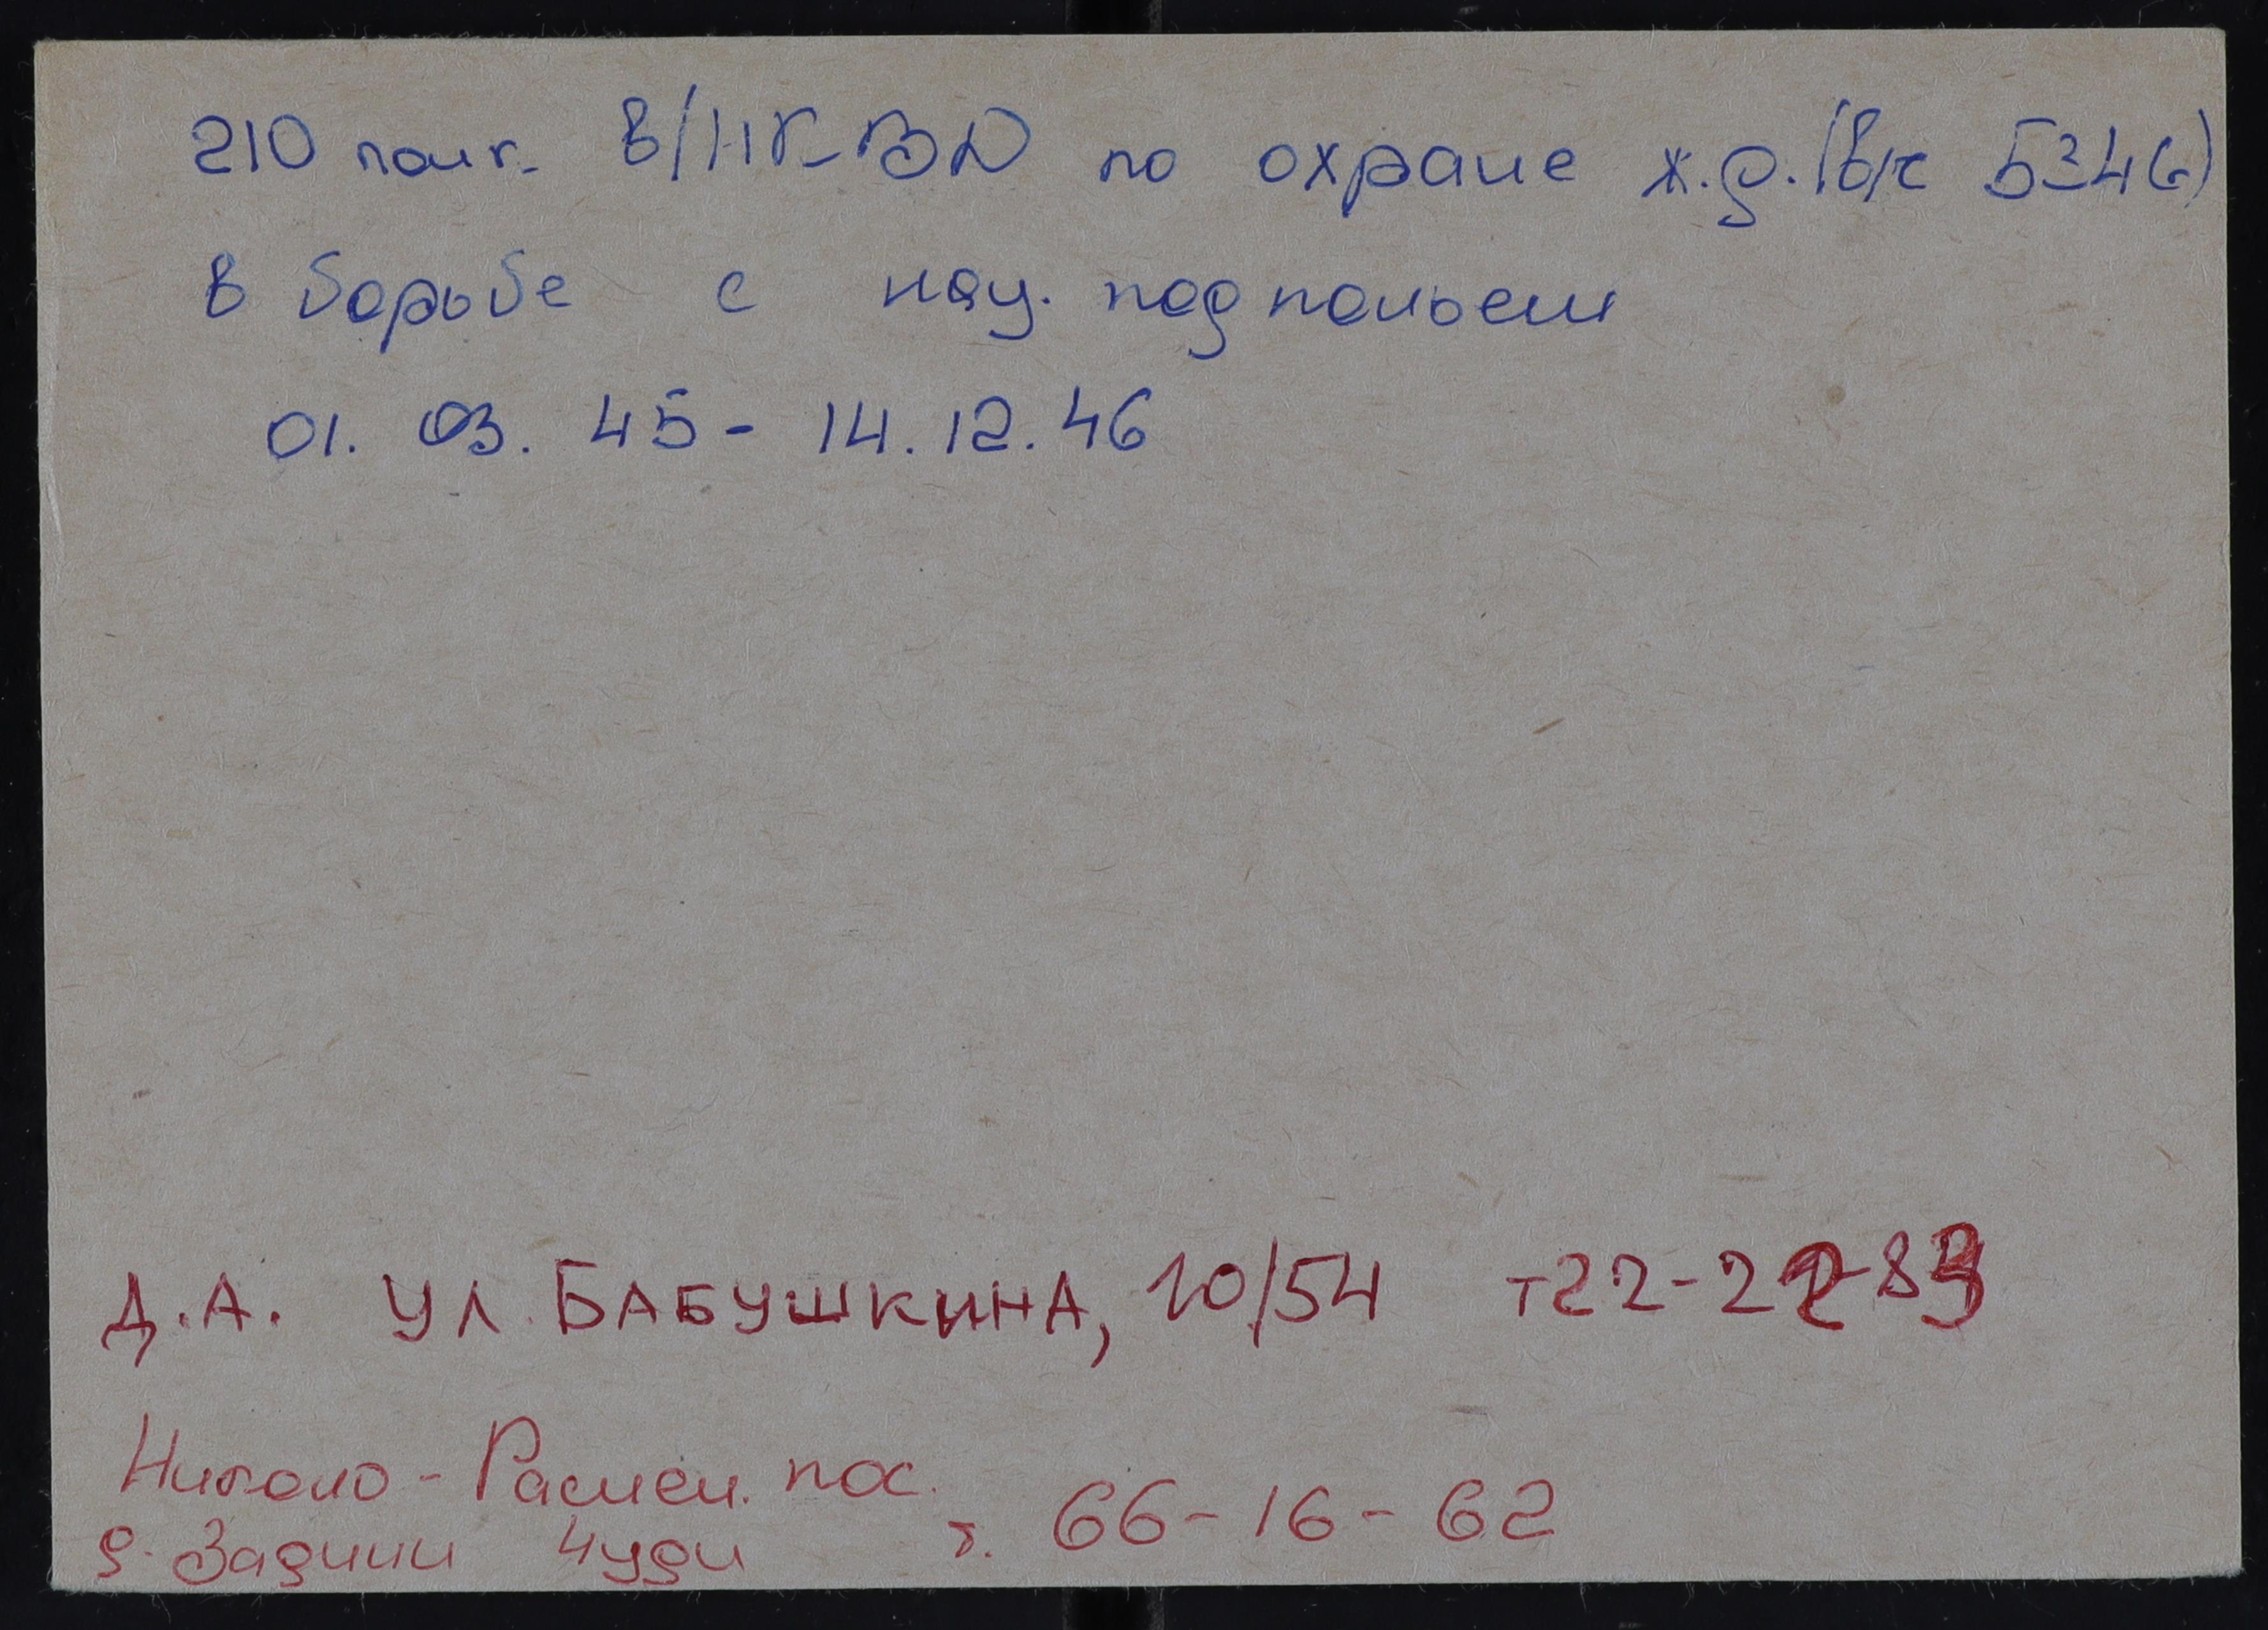 210 полк. в/НКВД по охране ж.д. (в/ч 5346)
в борьбе с нац. подпольем
01. 03. 45 - 14.12.46
Д.А. УЛ. БАБУШКИНА, 10/54 т 22-22-83
Николо-Рамен. пос. т. 66-16-62
д. Задние Чуди